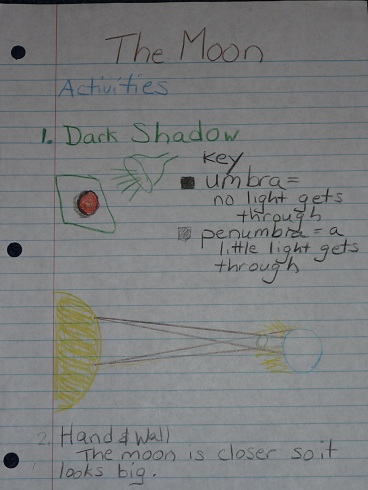 The Moon
Activities
1. Dark Shadow
Key
umbra=
no light gets
through
penumbra= a
little light gets
through
2. Hand & Wall
The moon is closer so it
looks big.